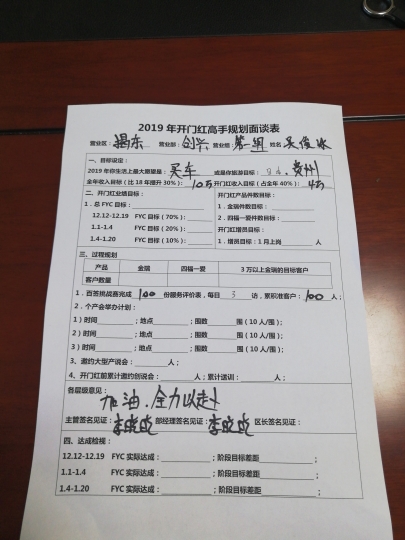 2019 年开门红高手规划面谈表
营业区: 揭东 营业部: 创兴 营业组: 第一组 姓名 吴俊
一、目标设定:
2019 年你生活上最大愿望是: 买车 或是你旅游目标: 贵州
全年收入目标(比 18 年提升 30%): 10万 开门红收入目标(占全年 40%): 4万
二、开门红业绩目标: 开门红产品件数目标:
1. 总 FYC 目标: 1. 金瑞件数目标:
12.12-12.19 FYC 目标(70%): 2. 四福一爱件数目标:
1.1-1.4 FYC 目标(20%): 开门红增员目标:
1.4-1.20 FYC 目标(10%): 1. 增员目标:1 月上岗 人
三、过程规划
产品 金瑞 四福一爱 3 万以上金瑞的目标客户
客户数量
1. 百签挑战赛完成 100 份服务评价表,每日 3 访,累积准客户: 100 人;
2. 个产会举办计划:
1)时间 ;地点 ;围数 围(10 人/围);
2)时间 ;地点 ;围数 围(10 人/围);
3)时间 ;地点 ;围数 围(10 人/围);
3、邀约大型产说会: 人;
4、开门红前累计邀约创说会: 人;累计送训: 人;
各层级意见:
加油,全力以赴
主管签名见证: 部经理签名见证: 区长签名见证:
四、达成检视:
12.12-12.19 FYC 实际达成: ;阶段目标差距 ;
1.1-1.4 FYC 实际达成: ;阶段目标差距 ;
1.4-1.20 FYC 实际达成: ;阶段目标差距 ;